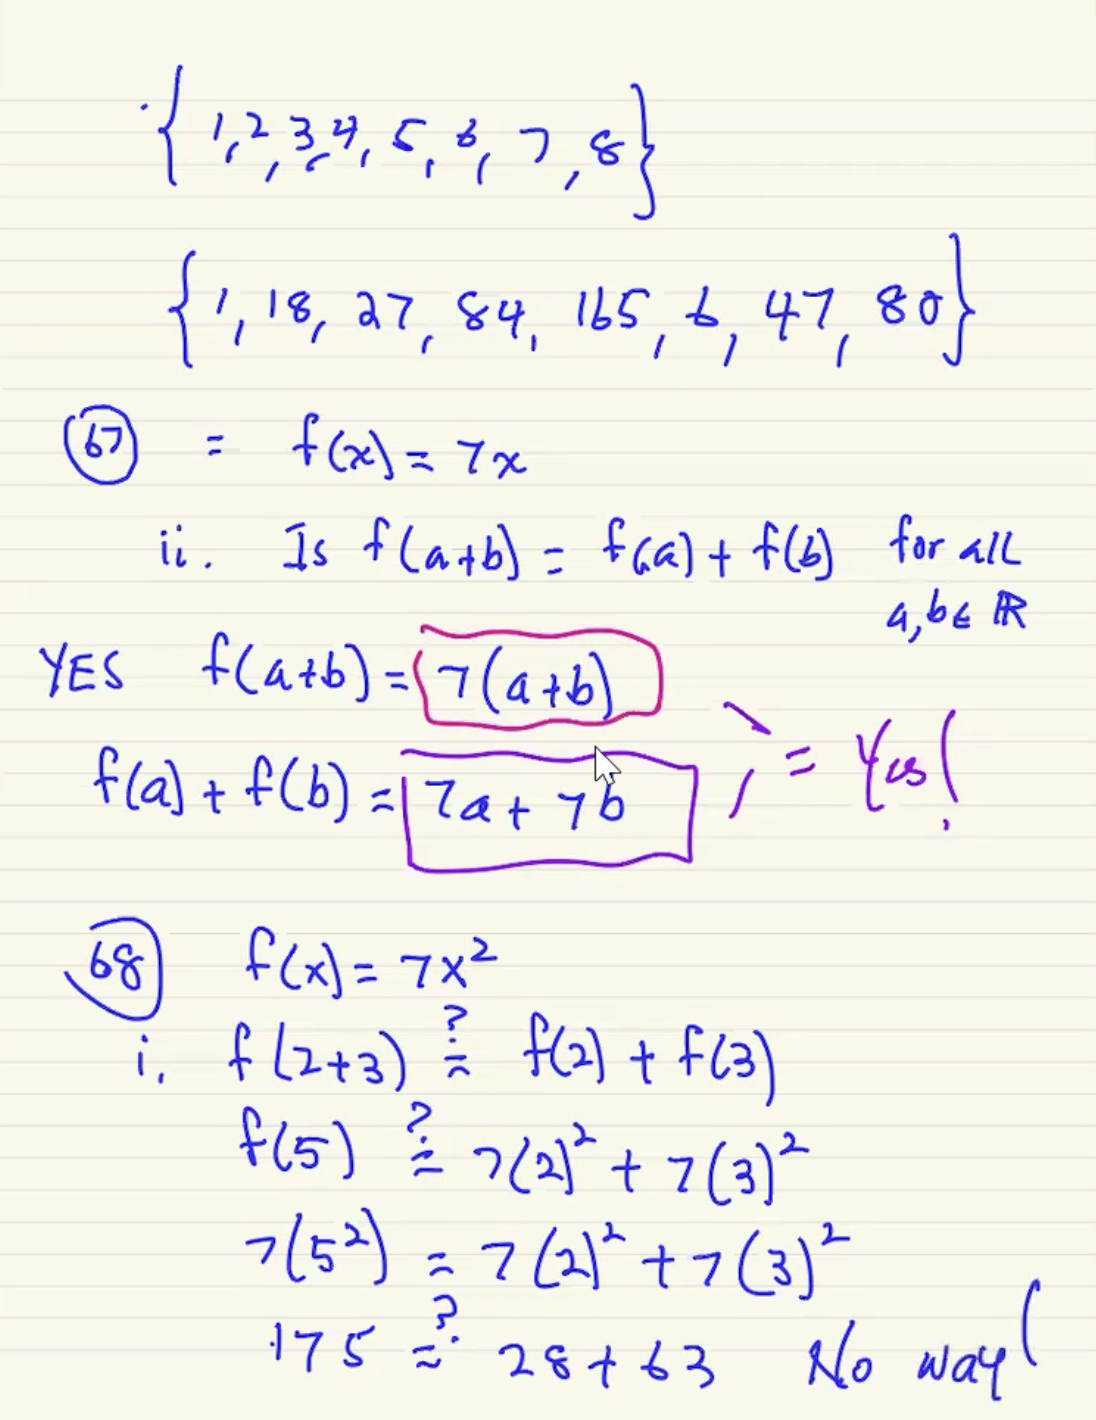 {1, 2, 3, 4, 5, 6, 7, 8}
{1, 18, 27, 84, 165, 6, 47, 80}
67 = f(x) = 7x
ii. Is f(a+b) = f(a) + f(b) for all
a, b ∈ ℝ
YES f(a+b) = 7(a+b)
f(a) + f(b) = 7a + 7b = Yes!
68 f(x) = 7x²
i. f(2+3) ≟ f(2) + f(3)
f(5) ≟ 7(2)² + 7(3)²
7(5²) = 7(2)² + 7(3)²
175 ≟ 28 + 63 No way